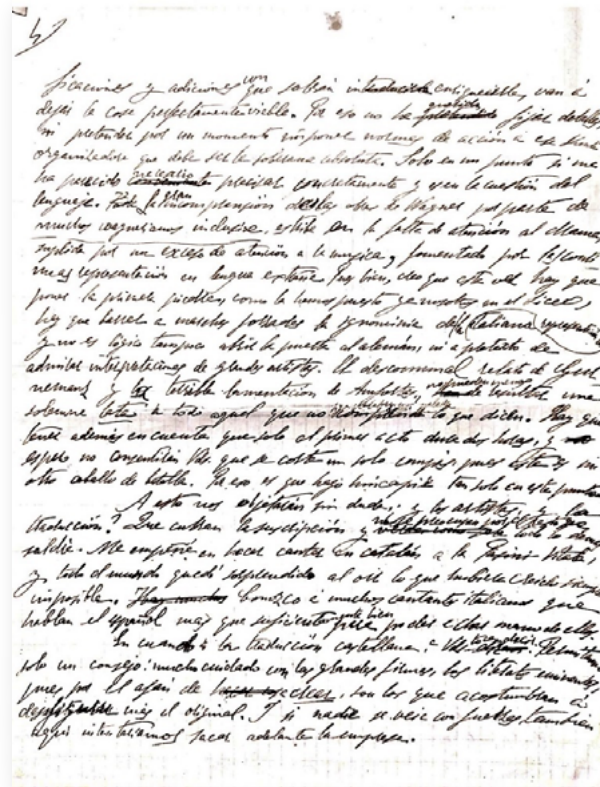 4)
ficaciones y adiciones con que sabrán enriquecerla, van á
dejar la cosa perfectamente viable. Por eso no he querido fijar detalles,
ni pretender por un momento imponer normas de acción á esa
organizadora que debe ser la soberana absoluta. Solo en un punto si me
ha parecido necesario precisar concretamente y es en la cuestión del
lenguaje. Toda la gran incomprensión de la obra de Wagner por parte de
muchos wagnerianos inclusive, estriba en la falta de atención al drama,
suplida por un exceso de atención a la musica, y fomentada por las
representación en lengua extraña. Pues bien, creo que esta vez hay que
poner la primera piedra, como la hemos puesto ya nosotros en el Liceo,
hay que barrer a la ignominia de la italiana
y no es lógico tampoco abrir la puerta al alemán, ni a pretexto de
admirar interpretaciones de grandes artistas. El descomunal relato de Gur
nemanz y la terrible lamentación de Amfortas, de una
solemne lata a todo aquel que no lo que dicen. Hay que
tener además en cuenta que solo el primer acto dura dos horas, y
espero no consentirán Vds. que se corte un solo compás pues este es mi
otro caballo de batalla. Por eso es que hago hincapié tan solo en este punto
A esto nos objetarán sin duda: y los artistas, y la
traducción? Que cubran la suscripción y no se preocupen por el resto ya todo lo demás
saldrá. Me empeñé en hacer cantar en catalán a la
y todo el mundo quedó sorprendido al oir lo que hubiera creido
imposible. Conozco á muchos cantantes italianos que
hablan el español mas que suficientemente bien para poder echar mano de ellos.
En cuanto á la traducción castellana: Vds. Permitan
solo un consejo: mucho cuidado con las grandes firmas, los literatos eminentes,
pues, por el afan de son los que acostumbran á
mas el original. Y si nadie se veie con fuerzas, tambien
aquí intentariamos sacar adelante la empresa.